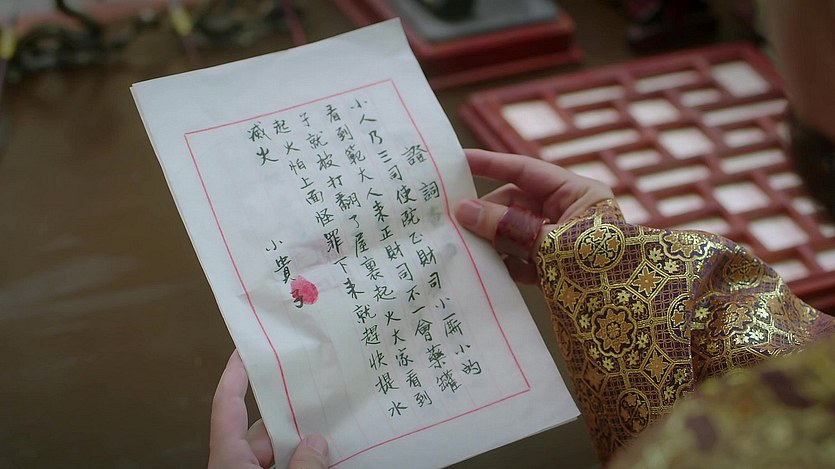 證詞
小人乃三司使院乙財司小廝小的
看到範大人來正財司不一會藥罐
子就被打翻了屋裏起火大家看到
起火怕上面怪罪下來就趕快提水
滅火
小貴子